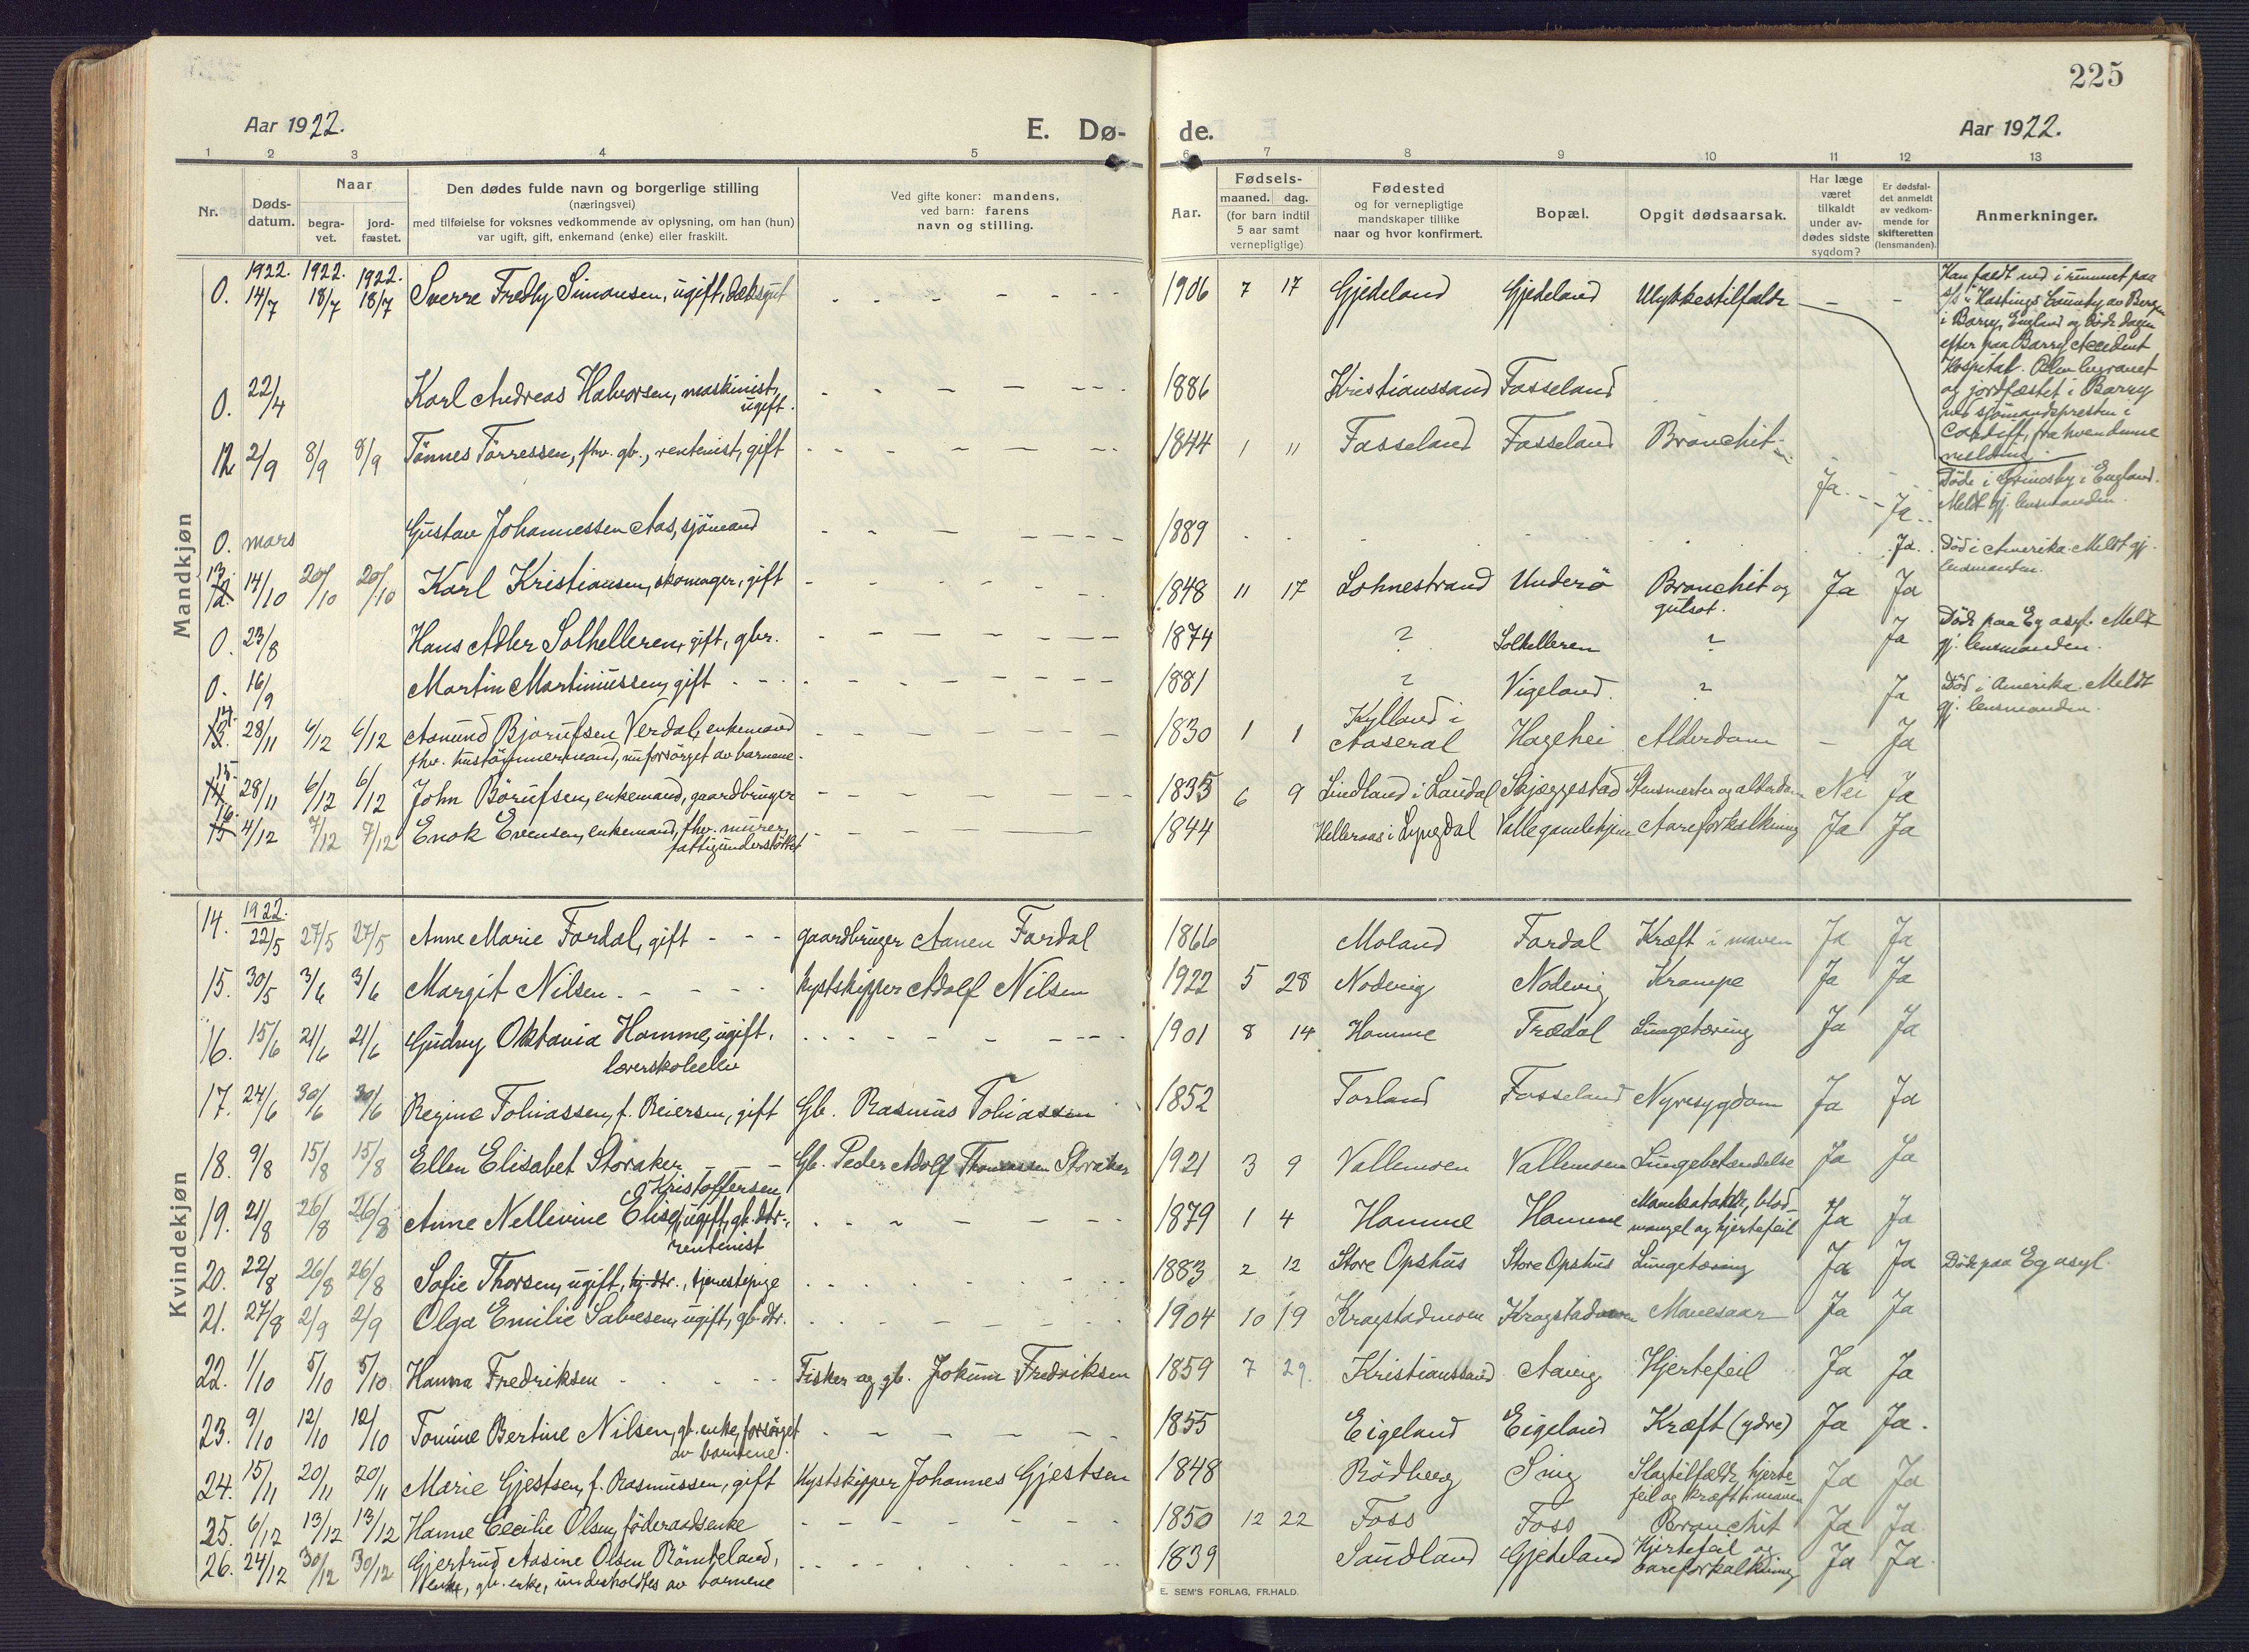 225
Aar 1922.
E. Dø-
de.
Aar 1922.
1 2 3 4 5 6 7 8 9 10 11 12 13
Nr.
Døds-
datum.
Naar
begra-
vet.
jord-
fæstet.
Den dødes fulde navn og borgerlige stilling
(næringsvei)
med tilføielse for voksnes vedkommende av oplysning, om han (hun)
var ugift, gift, enkemand (enke) eller fraskilt.
Ved gifte koner: mandens,
ved barn: farens
navn og stilling.
Aar.
Fødsels-
maaned. dag.
(for barn indtil
5 aar samt
vernepligtige)
Fødested
og for vernepligtige
mandskaper tillike
naar og hvor konfirmert.
Bopæl.
Opgit dødsaarsak.
Har læge
været
tilkaldt
under av-
dødes sidste
sygdom?
Er dødsfal-
det anmeldt
av vedkom-
mende for
skifteretten
(lensmanden).
Anmerkninger.
Mandkjøn
1922. 1922. 1922.
0. 14/7 18/7 18/7 Sverre Fredly Simonsen, ugift, dæksgut 1906 7 17 Gjedeland Gjedeland Ulykkestilfælde - -
Han faldt ned i rummet paa
s/s "Hastings County" av Bergen
i Barry, England og døde dagen
efter paa Barry Accident
Hospital. Blev begravet
og jordfæstet i Barry
ved sjømandspresten i
Cardiff, fra hvem denne
melding.
0. 22/4 Karl Andreas Halvorsen, maskinist,
ugift. 1886 Kristianssand Fasseland
Ja
Døde i Grimsby i England.
Meldt gj. lensmanden.
12 2/9 8/9 8/9 Tönnes Tørressen, fhv. gb., rentenist, gift 1844 1 11 Fasseland Fasseland Bronchit Ja Ja
0. mars Gustav Johannessen Aas, sjömand 1889 Ja. Död i Amerika. Meldt gj.
lensmanden.
13. 14/10 20/10 20/10 Karl Kristiansen, skomager, gift 1848 11 17 Lohnestrand Underö Bronchit og
gulsot. Ja Ja
0. 23/8 Hans Adler Solhelleren, gift, gbr. 1874 ? Solhelleren ? Ja Döde paa Eg asyl. Meldt
gj. lensmanden.
0. 16/9 Martin Martiniussen, gift 1881 ? Vigeland. ? Ja Död i Amerika. Meldt
gj. lensmanden.
14. 28/11 6/12 6/12 Aanund Bjorufsen Verdal, enkemand
fhv. hustömmermand, nu forsörget av barnene. 1830 1 1 Kylland i
Aaseral Hagehei Alderdom - Ja
15 28/11 6/12 6/12 John Börufsen, enkemand, gaardbruger 1835 6 9 Lindland i Laudal Skjæggestad Stensmerter og alderdom Nei Ja
16. 4/12 7/12 7/12 Enok Evensen, enkemand, fhv. murer,
fattigunderstöttet 1844 Helleraas i Lyngdal Valle gamlehjem Aareforkalkning Ja Ja
Kvindekjøn
1922.
14. 22/5 27/5 27/5 Anne Marie Fardal, gift - - - gaardbruger Aanen Fardal 1866 Moland Fardal Kræft i maven Ja Ja
15. 30/5 3/6 3/6 Margit Nilsen - - - - Kystskipper Adolf Nilsen 1922 5 28 Nodevig Nodevig Krampe Ja Ja
16. 15/6 21/6 21/6 Gudny Oktavia Homme, ugift,
lærerskoleelev 1901 8 14 Homme Trædal Lungetæring Ja Ja
17. 24/6 30/6 30/6 Regine Tobiassen, f. Reiersen, gift Gb. Rasmus Tobiassen 1852 Torland Fasseland Nyresygdom Ja Ja
18. 9/8 15/8 15/8 Ellen Elisabet Storaker - - - Gb. Peder Adolf Thomassen Storaker 1921 3 9 Vallemoen Vallemoen Lungebetændelse Ja Ja
Kristoffersen,
19. 21/8 26/8 26/8 Anne Nellevine Elise, ugift, gb. dtr.,
rentenist 1879 1 4 Homme Homme blod-
mangel og hjertefeil Ja Ja
20. 22/8 26/8 26/8 Sofie Thorsen, ugift, tjenestepige 1883 2 12 Store Opshus Store Opshus Lungetæring Ja Ja Döde paa Eg asyl.
21. 27/8 2/9 2/9 Olga Emilie Salvesen, ugift, gb. dtr. 1904 10 19 Kragstadmoen Kragstadmoen Mavesaar Ja Ja
22. 1/10 5/10 5/10 Hanna Fredriksen Fisker og gb. Jokum Fredriksen 1859 7 29. Kristianssand Aavig Hjertefeil Ja Ja
23. 9/10 12/10 12/10 Tomine Bertine Nilsen, gb. enke, forsörget
av barnene. 1855 Eigeland Eigeland Kræft (ydre) Ja Ja.
24. 15/11 20/11 20/11 Marie Gjestsen, f. Rasmussen, gift Kystskipper Johannes Gjestsen 1848 Rödberg Snig Slagtilfælde, hjerte
feil og kræft i maven Ja Ja
25. 6/12 13/12 13/12 Hanne Cecilie Olsen, föderaadsenke 1850 12 22 Foss Foss Bronchit Ja Ja
26. 24/12 30/12 30/12 Gjertrud Aasine Olsen Römteland,
enke, gb. enke, underholdtes av barnene 1839 Saudland Gjedeland Hjertefeil og
aareforkalkning Ja Ja.
E. SEM'S FORLAG, FR.HALD.